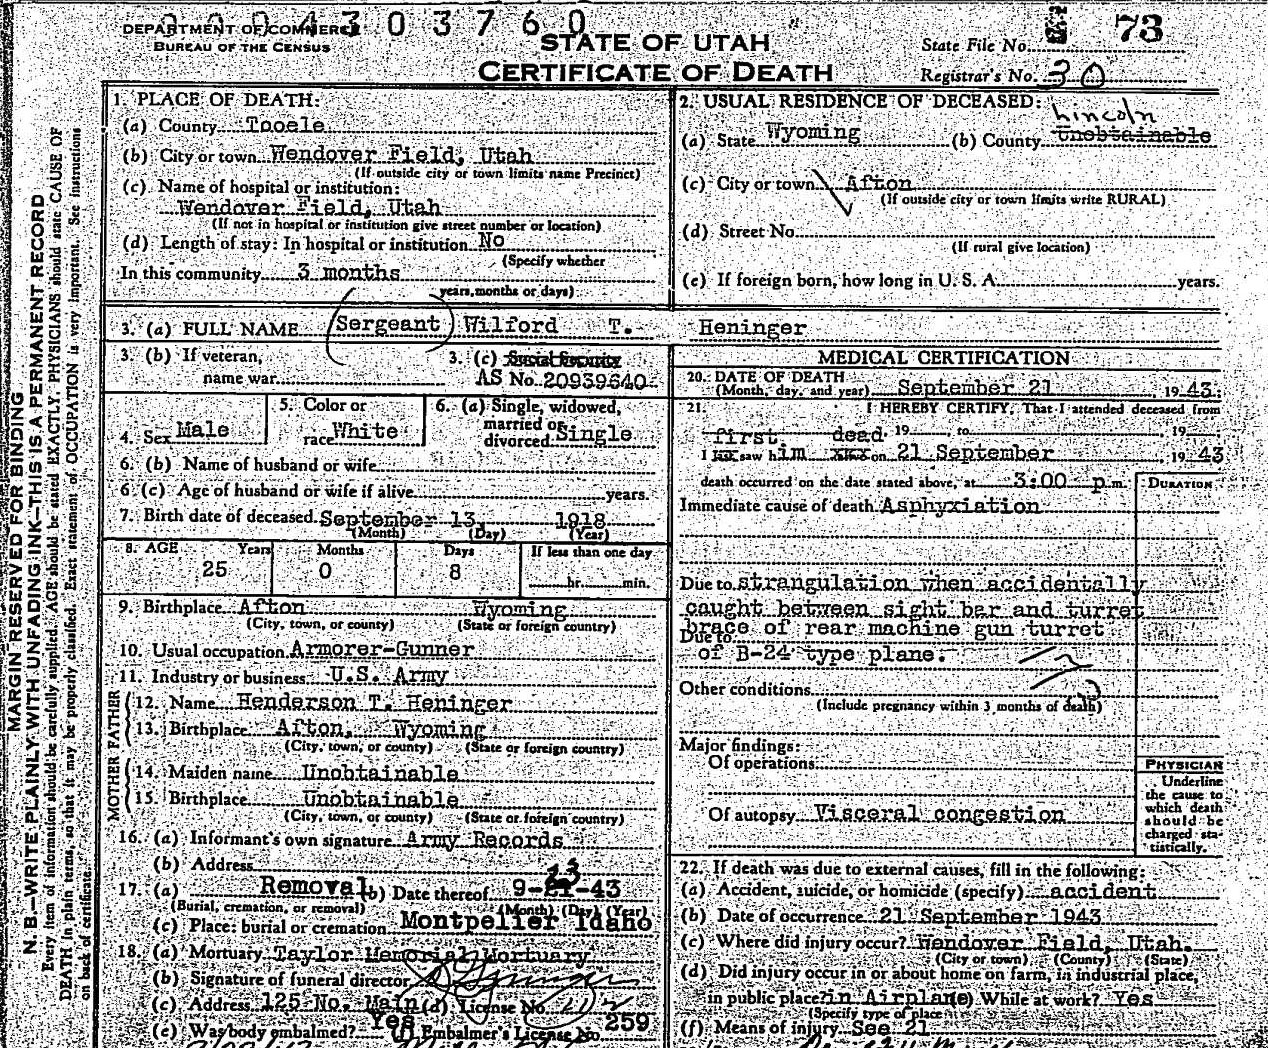 0 0 0 4 3 0 3 7 6 0
DEPARTMENT OF COMMERCE
BUREAU OF THE CENSUS
STATE OF UTAH
CERTIFICATE OF DEATH
State File No. 73
Registrar's No. 30
MARGIN RESERVED FOR BINDING
N. B.—WRITE PLAINLY WITH UNFADING INK—THIS IS A PERMANENT RECORD
Every item of information should be carefully supplied. AGE should be stated EXACTLY. PHYSICIANS should state CAUSE OF
DEATH in plain terms, so that it may be properly classified. Exact statement of OCCUPATION is very important. See instructions
on back of certificate.
1. PLACE OF DEATH:
(a) County Tooele
(b) City or town Wendover Field, Utah
(If outside city or town limits name Precinct)
(c) Name of hospital or institution:
Wendover Field, Utah
(If not in hospital or institution give street number or location)
(d) Length of stay: In hospital or institution No
(Specify whether
In this community 3 months
years, months or days)
2. USUAL RESIDENCE OF DECEASED:
Lincoln
(a) State Wyoming (b) County Unobtainable
(c) City or town Afton
(If outside city or town limits write RURAL)
(d) Street No.
(If rural give location)
(e) If foreign born, how long in U. S. A. years.
3. (a) FULL NAME (Sergeant) Wilford T. Heninger
3. (b) If veteran,
name war
3. (c) Social Security
AS No. 20939640
4. Sex Male
5. Color or
race White
6. (a) Single, widowed,
married or
divorced Single
6. (b) Name of husband or wife
6. (c) Age of husband or wife if alive years.
7. Birth date of deceased September 13, 1918
(Month) (Day) (Year)
8. AGE Years Months Days If less than one day
25 0 8 hr. min.
9. Birthplace Afton Wyoming
(City, town, or county) (State or foreign country)
10. Usual occupation Armorer-Gunner
11. Industry or business U.S. Army
FATHER
12. Name Henderson T. Heninger
13. Birthplace Afton, Wyoming
(City, town, or county) (State or foreign country)
MOTHER
14. Maiden name Unobtainable
15. Birthplace Unobtainable
(City, town, or county) (State or foreign country)
16. (a) Informant's own signature Army Records
(b) Address
17. (a) Removal (b) Date thereof 9-23-43
(Burial, cremation, or removal) (Month) (Day) (Year)
(c) Place: burial or cremation Montpelier Idaho
18. (a) Mortuary Taylor Memorial Mortuary
(b) Signature of funeral director
(c) Address 125 No. Main (d) License No.
(e) Was body embalmed? Yes (f) Embalmer's License No. 259
MEDICAL CERTIFICATION
20. DATE OF DEATH
(Month, day, and year) September 21, 1943.
21. I HEREBY CERTIFY, That I attended deceased from
first dead 19 , to , 19
I saw him xxx on 21 September, 1943
death occurred on the date stated above, at 3:00 p m.
DURATION
Immediate cause of death Asphyxiation
Due to strangulation when accidentally
caught between sight bar and turret
Due to brace of rear machine gun turret
of B-24 type plane.
Other conditions
(Include pregnancy within 3 months of death)
Major findings:
Of operations
Of autopsy Visceral congestion
PHYSICIAN
Underline
the cause to
which death
should be
charged sta-
tistically.
22. If death was due to external causes, fill in the following:
(a) Accident, suicide, or homicide (specify) accident
(b) Date of occurrence 21 September 1943
(c) Where did injury occur? Wendover Field, Utah.
(City or town) (County) (State)
(d) Did injury occur in or about home on farm, in industrial place,
in public place? in Airplane (e) While at work? Yes
(Specify type of place
(f) Means of injury See 21